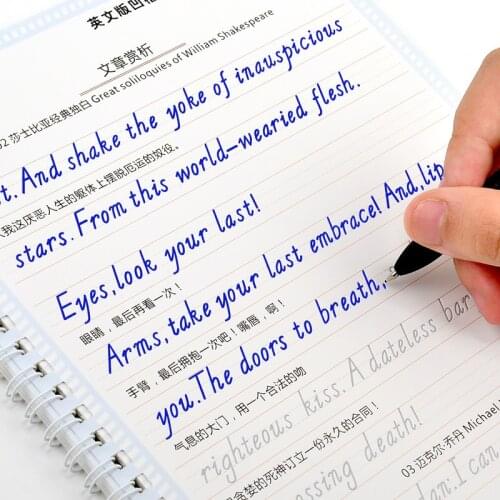 英文版凹槽
文章赏析
02 莎士比亚经典独白 Great soliloquies of William Shakespeare
t. And shake the yoke of inauspicious
从我这厌恶人生的躯体上摆脱厄运的奴役。
stars. From this world-wearied flesh.
Eyes, look your last!
眼睛，最后再看一次！
Arms, take your last embrace! And, lip
手臂，最后拥抱一次吧！嘴唇，啊！
you. The doors to breath,
气息的大门，用一个合法的吻
righteous kiss. A dateless bar
贪婪的死神订立一份永久的合同！
ossing death!
03 迈克尔·乔丹 Michael J
n: I can